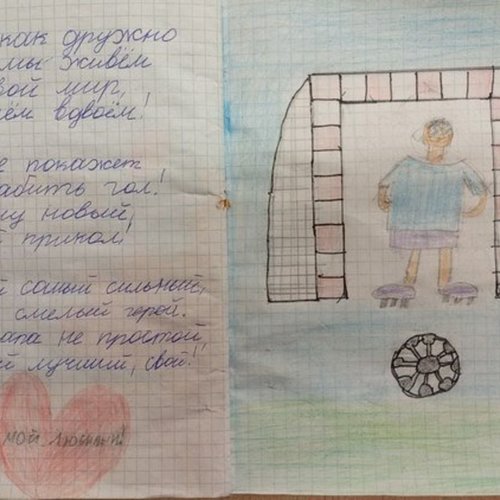 как дружно
мы живём
вой мир,
ём вдвоём!
е покажет
абить гол!
му новый,
й прикол!
й самый сильный,
смелый герой.
апа не простой,
й лучший, свой!
мой любимый!